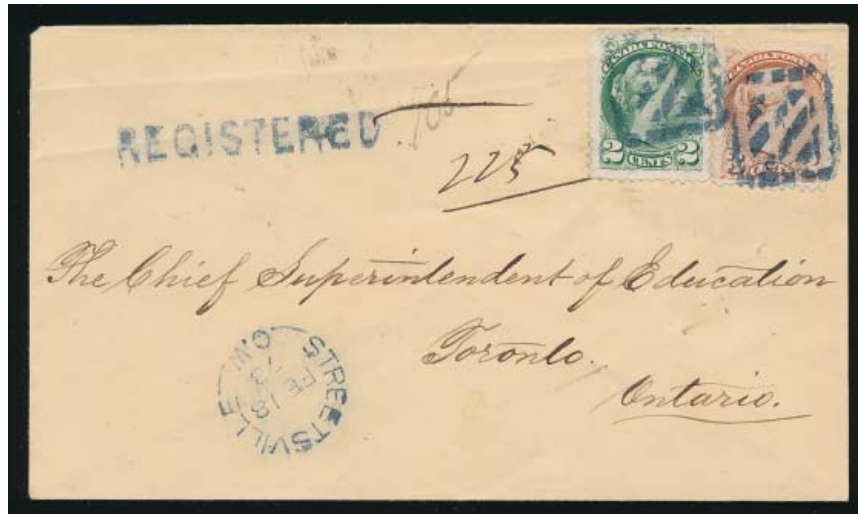 CANADA POSTAGE
CANADA POSTAGE
2 CENTS 2
REGISTERED
225
The Chief Superintendent of Education
Toronto.
Ontario.
STREETSVILLE C.W.
FE 18
73